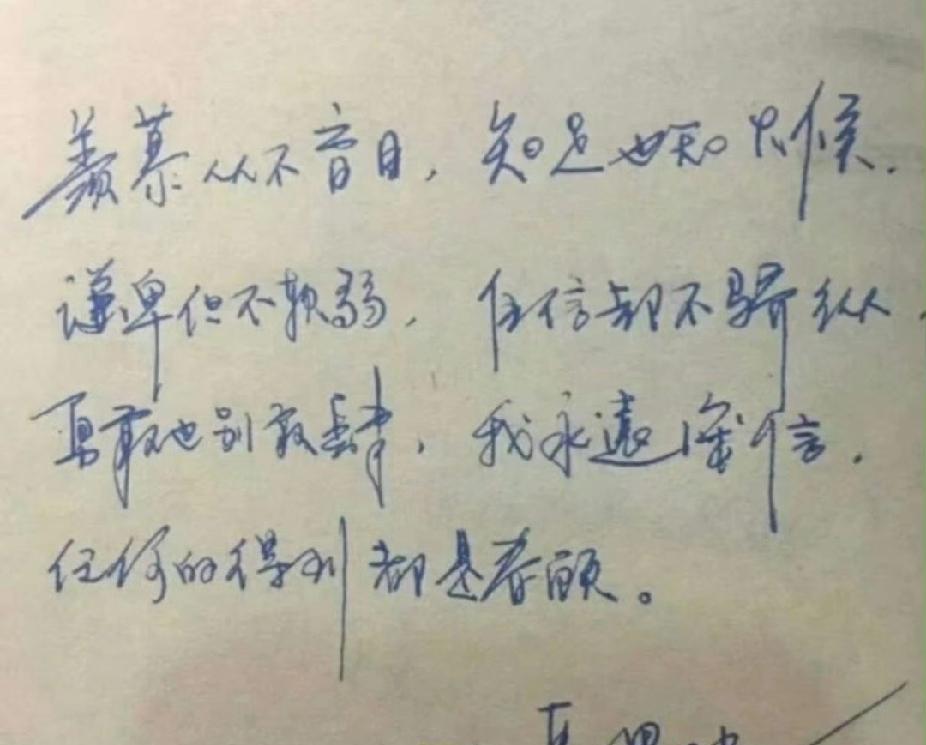 羡慕从不盲目，知足也知火候.
谦卑但不软弱，任信却不骄纵，
勇敢也别放肆，我永远深信.
任何的得到都是眷顾。